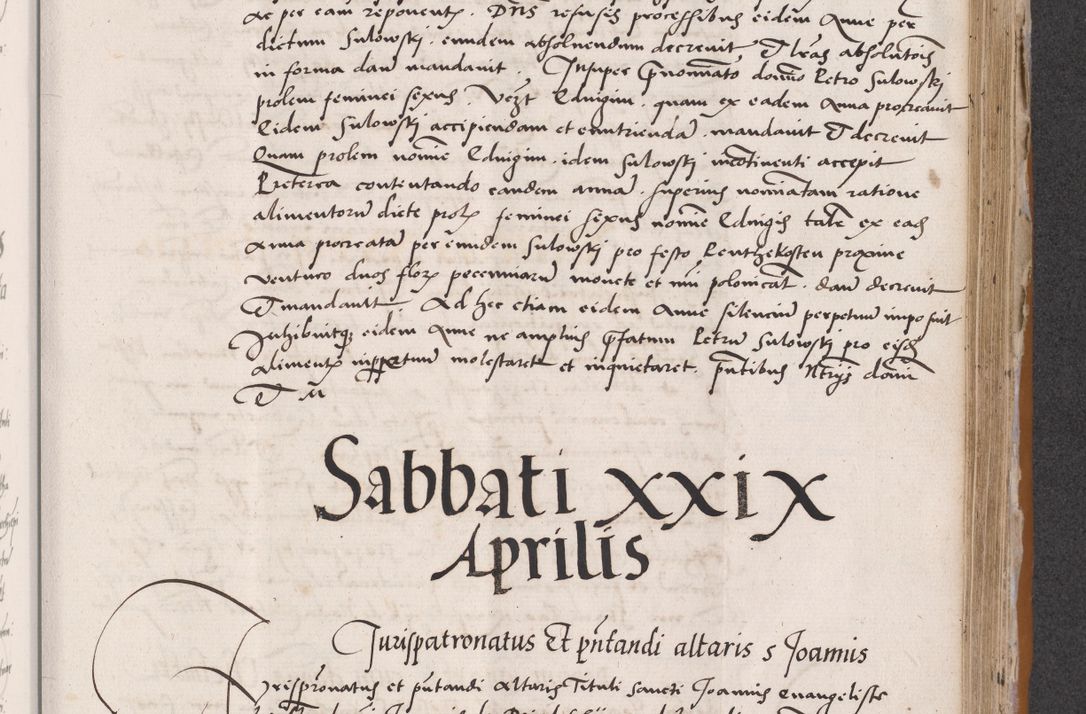 ac per eam reponentꝭ. Dns refusis processibus eidem Anne per
dictum Sulowskj. eundem absoluendum decreuit Et lrãs absolutoris
in forma dari mandauit. Insuper prenominato domino Petro Sulowskj
prolem feminei sexus. Vcz̃t Edwigim. quam ex eadem Anna procreauit
Eidem Sulowskj accipiendam et enutriendã. mandauit Et decreuit
Quam prolem nomĩe Edwigim. idem Sulowskj incõtinenti accepit
Preterea contentando eandem annã. superius nomĩatam ratione
alimentorũ dicte prolꝭ feminei sexus nomĩe Edwigis talẽ ex eadẽ
Anna procreatã per eundem Sulowskj pro festo Penthekosten proxime
venturo duos florꝭ pecuniarũ monete et nũi polonicał. dari decreuit
Et mandauit. Ad hec etiam eidem Anne silenciũ perpetuũ imposuit
Inhibuitqꝫ eidem Anne ne amplius p̃fatum Petrũ Sulowskj pro eisdẽ
Alimentꝭ impeteret molestaret et inquietaret. p̃ntibus
Sabbati xxix
Aprilis
Jurispatronatus Et p̃ntandi altaris s Joannis
Jurisprõnatus et p̃ntandi Altaris Tituli sancti Joannis euangeliste